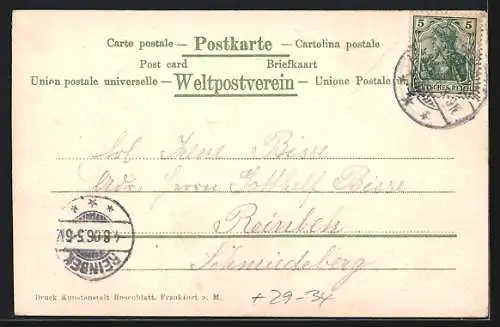 Carte postale — Postkarte — Cartolina postale
Post card Briefkaart
Union postale universelle — Weltpostverein — Unione Postale
5 5
DEUTSCHES REICH
Frl. Irene Bisse
Adr. Herrn Gotthelf Bisse
Reinbek
Schmiedeberg
4.8.06.5-6N.
REINBEK
Druck Kunstanstalt Rosenblatt, Frankfurt a. M.
+29-34